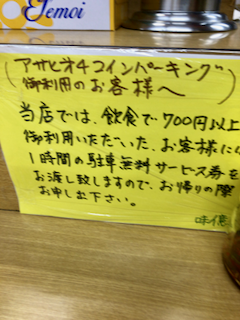 Jemoi
(アサヒオ4コインパーキング)
御利用のお客様へ
当店では、飲食で700円以上
御利用いただいた、お客様に
1時間の駐車無料サービス券を
お渡し致しますので、お帰りの際
お申し出下さい。